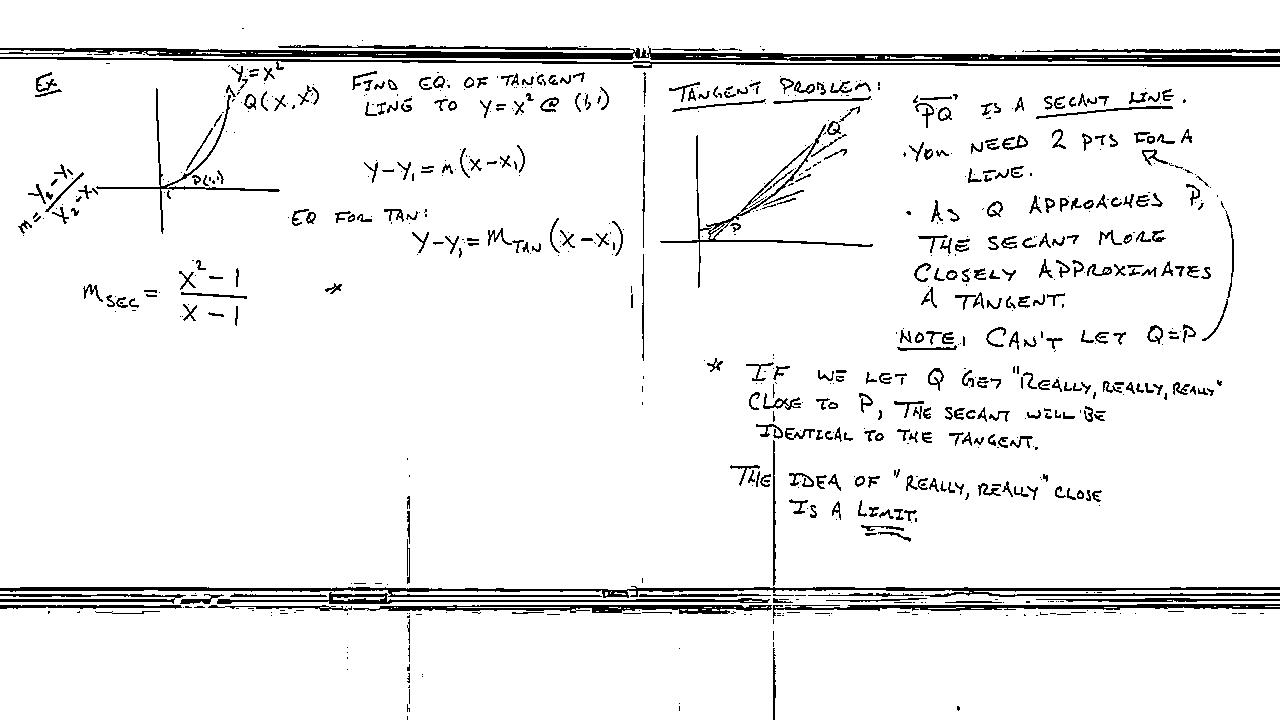 Ex
y=x²
Q(x,x²)
P(1,1)
1
m=y₂-y₁/x₂-x₁
FIND EQ. OF TANGENT
LING TO y=x² @ (1,1)
y-y₁=m(x-x₁)
EQ FOR TAN:
y-y₁=m_TAN(x-x₁)
m_SEC = x²-1/x-1 *
TANGENT PROBLEM:
Q
P
PQ IS A SECANT LINE.
·YOU NEED 2 PTS FOR A
LINE.
· AS Q APPROACHES P,
THE SECANT MORE
CLOSELY APPROXIMATES
A TANGENT.
NOTE: CAN'T LET Q=P
* IF WE LET Q GET "REALLY, REALLY, REALLY"
CLOSE TO P, THE SECANT WILL BE
IDENTICAL TO THE TANGENT.
THE IDEA OF "REALLY, REALLY" CLOSE
IS A LIMIT.